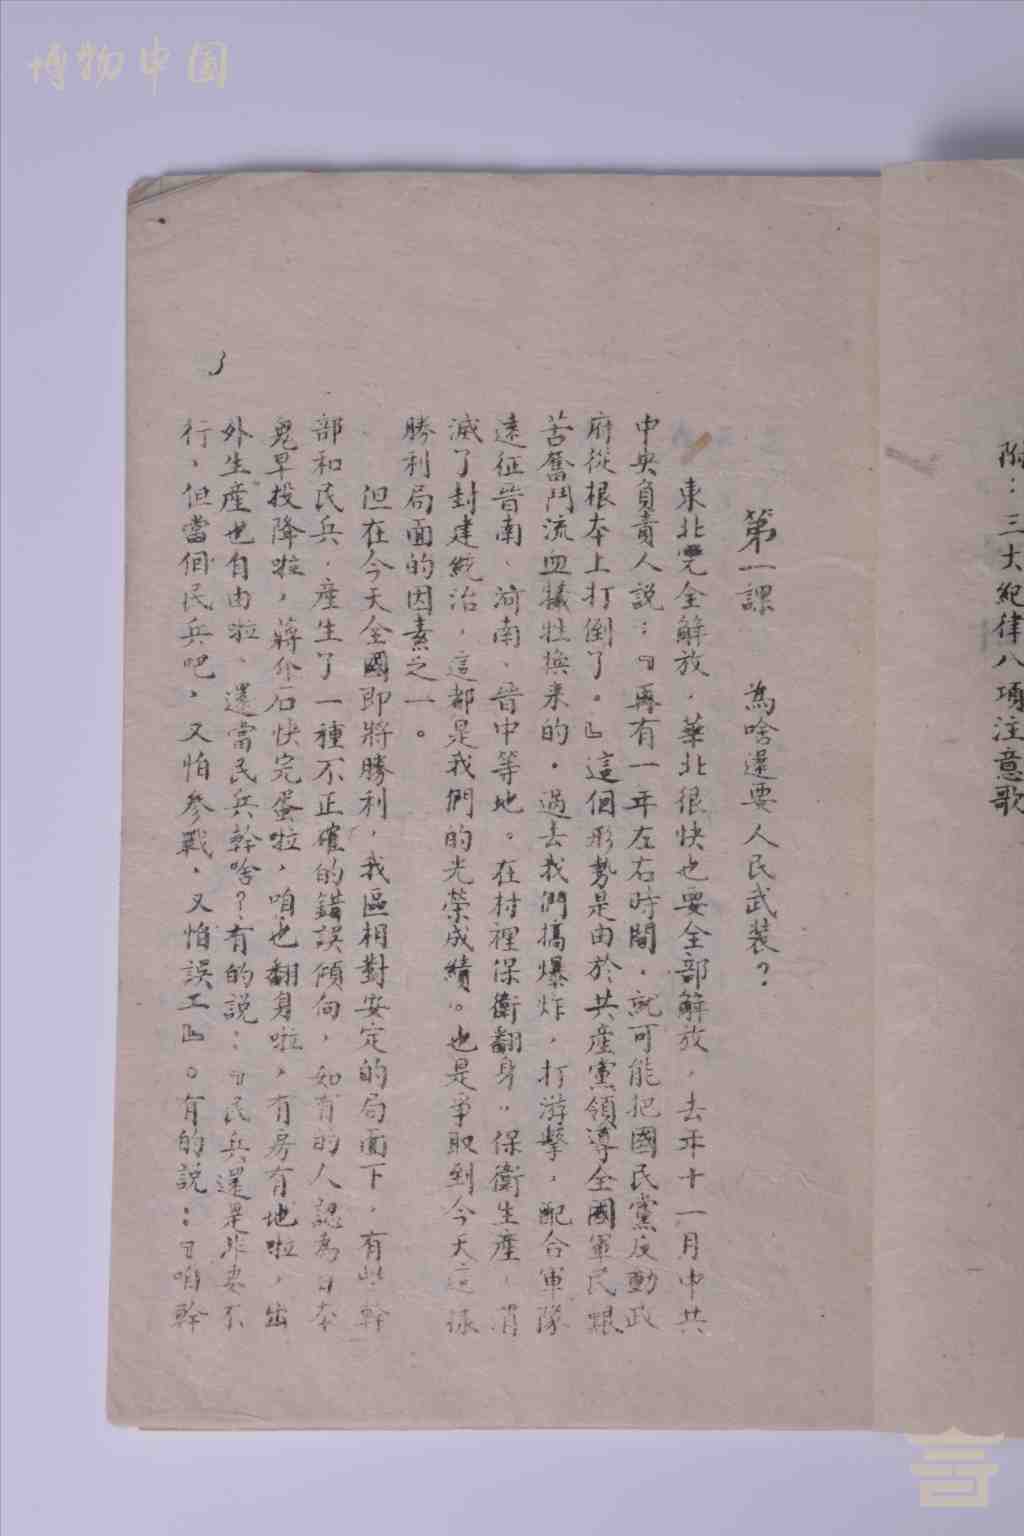 博物中国
附：三大紀律八項注意歌
第一課　為啥還要人民武裝？
東北完全解放，華北很快也要全部解放，去年十一月中共
中央負責人說：『再有一年左右時間，就可能把國民黨反動政
府從根本上打倒了。』這個形勢是由於共產黨領導全國軍民艱
苦奮鬥流血犧牲換来的。過去我們搞爆炸，打游擊，配合軍隊
遠征晉南、河南、晉中等地。在村裡保衛翻身，保衛生產，消
滅了封建統治，這都是我們的光榮成績。也是爭取到今天這樣
勝利局面的因素之一。
但在今天全國即將勝利，我區相對安定的局面下，有些幹
部和民兵，產生了一種不正確的錯誤傾向，如有的人認為日本
鬼早投降啦，蔣介石快完蛋啦，咱也翻身啦，有房有地啦，出
外生產也自由啦、還當民兵幹啥？有的說：『民兵還是非要不
行，但當個民兵吧，又怕參戰，又怕誤工』。有的說：『咱幹
3